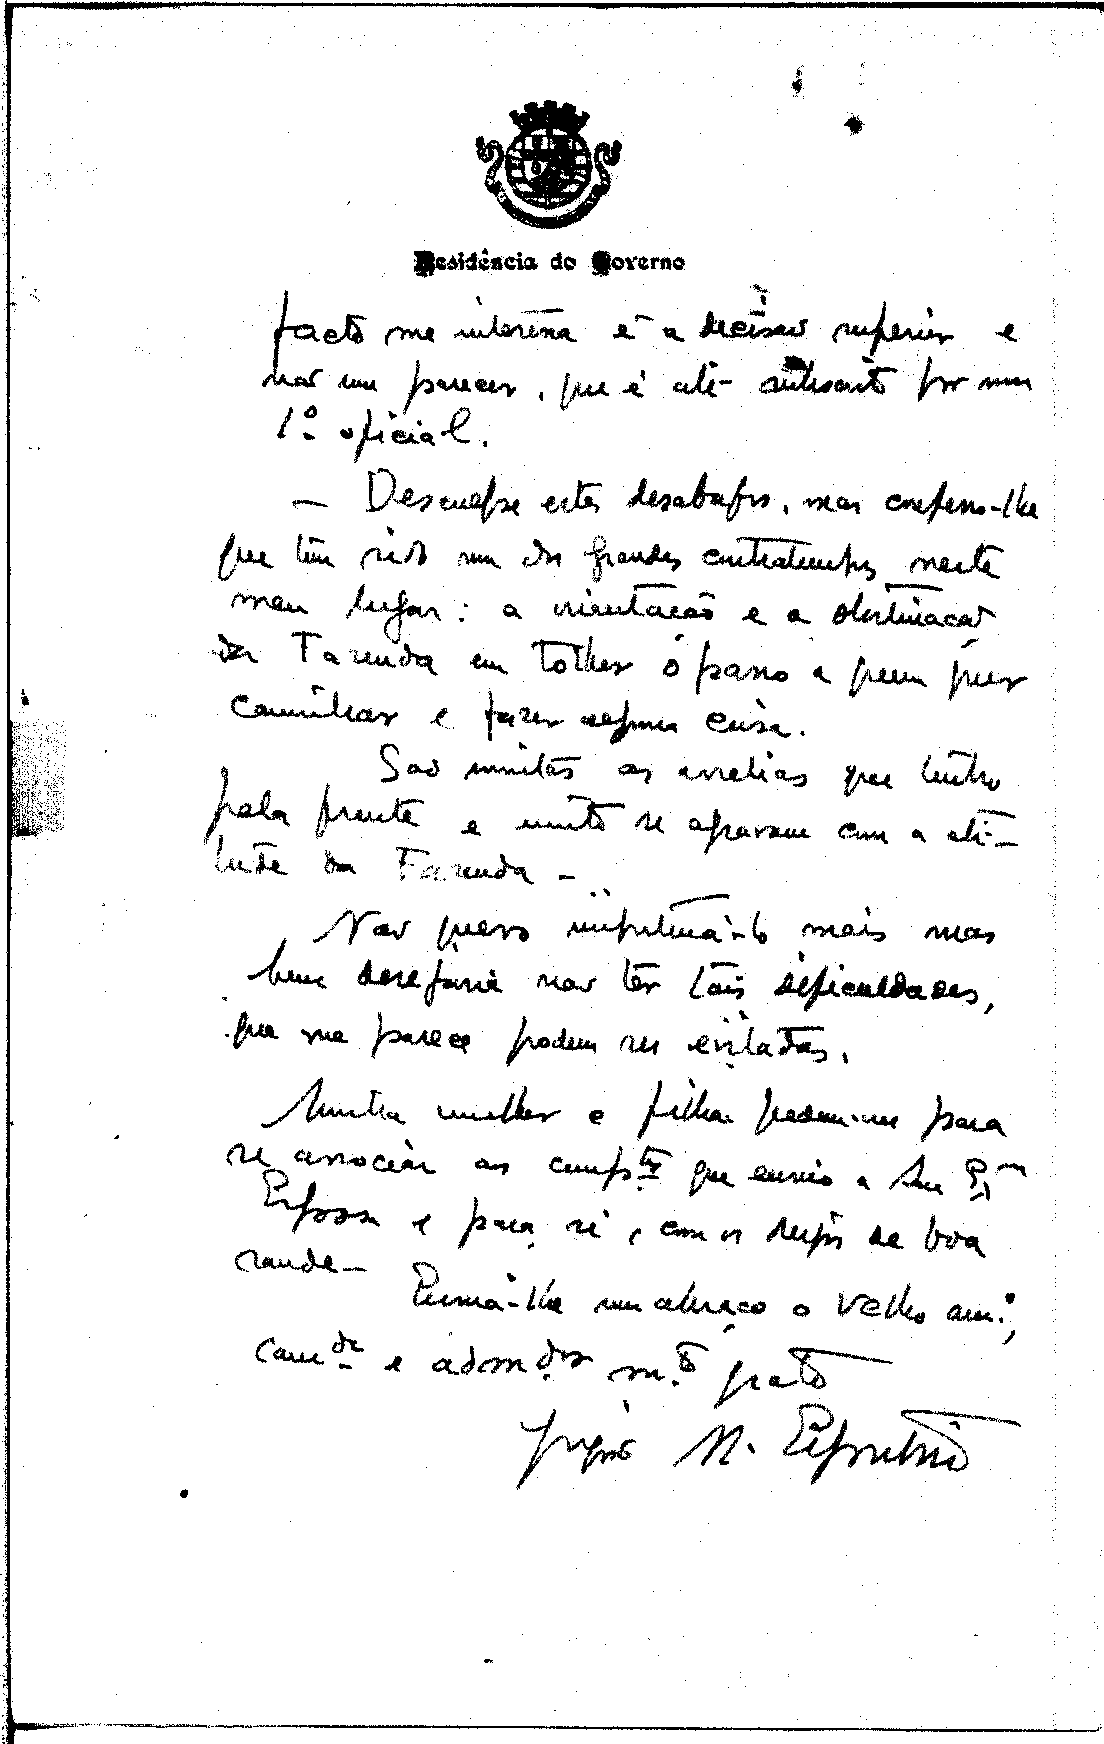 Residência do Governo
facto me interessa é a decisão superior e
não um parecer, que é até subscrito por um
1º oficial.
— Desculpe estes desabafos, mas confesso-lhe
que tem sido um dos grandes contratempos neste
meu lugar: a orientação e a obstinação
da Fazenda em tolher o passo a quem quer
caminhar e fazer alguma coisa.
São muitas as arrelias que tenho
pela frente e muito se agravam com a ati-
tude da Fazenda —
Não quero importuná-lo mais mas
bem desejaria não ter tais dificuldades,
que me parece podem ser evitadas.
Minha mulher e filhas pedem-me para
se associar aos cumptos que envio a Sua Exma
Esposa e para si, com os desejos de boa
saude —
Envia-lhe um abraço o velho amº,
camda e admdor mtº grato
M.